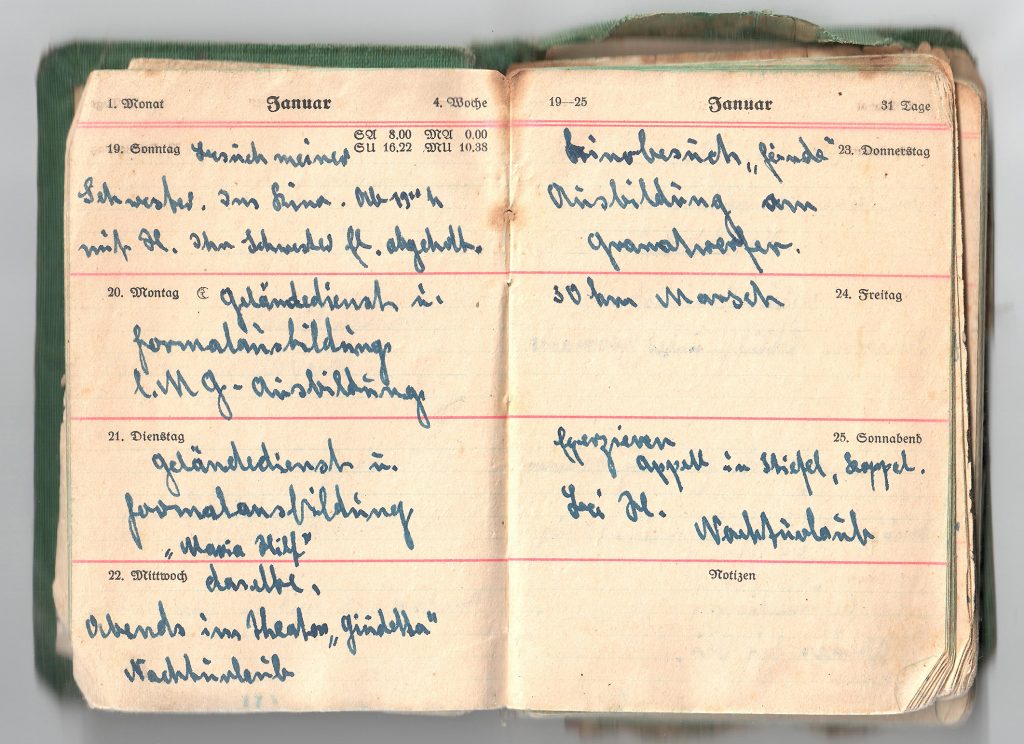 1. Monat Januar 4. Woche
SA 8.00 MA 0.00
19. Sonntag SU 16.22 MU 10.38
Besuch meiner
Schwester. Ins Kino. Ab 19⁰⁰ h
mit Hl. Ihn Schwester Kl. abgeholt.
20. Montag ☾ Geländedienst u.
Formalausbildung
l. M G - Ausbildung
21. Dienstag
Geländedienst u.
Formalausbildung
„Maria Hilf"
22. Mittwoch daselbe.
Abends im Theater „Giuditta"
Nachturlaub
19—25 Januar 31 Tage
Kinobesuch „Feinde" 23. Donnerstag
Ausbildung am
Granatwerfer.
30 km Marsch 24. Freitag
Exerzieren 25. Sonnabend
Appell in Stiefel, Koppel.
Bei Hl.
Nachturlaub
Notizen